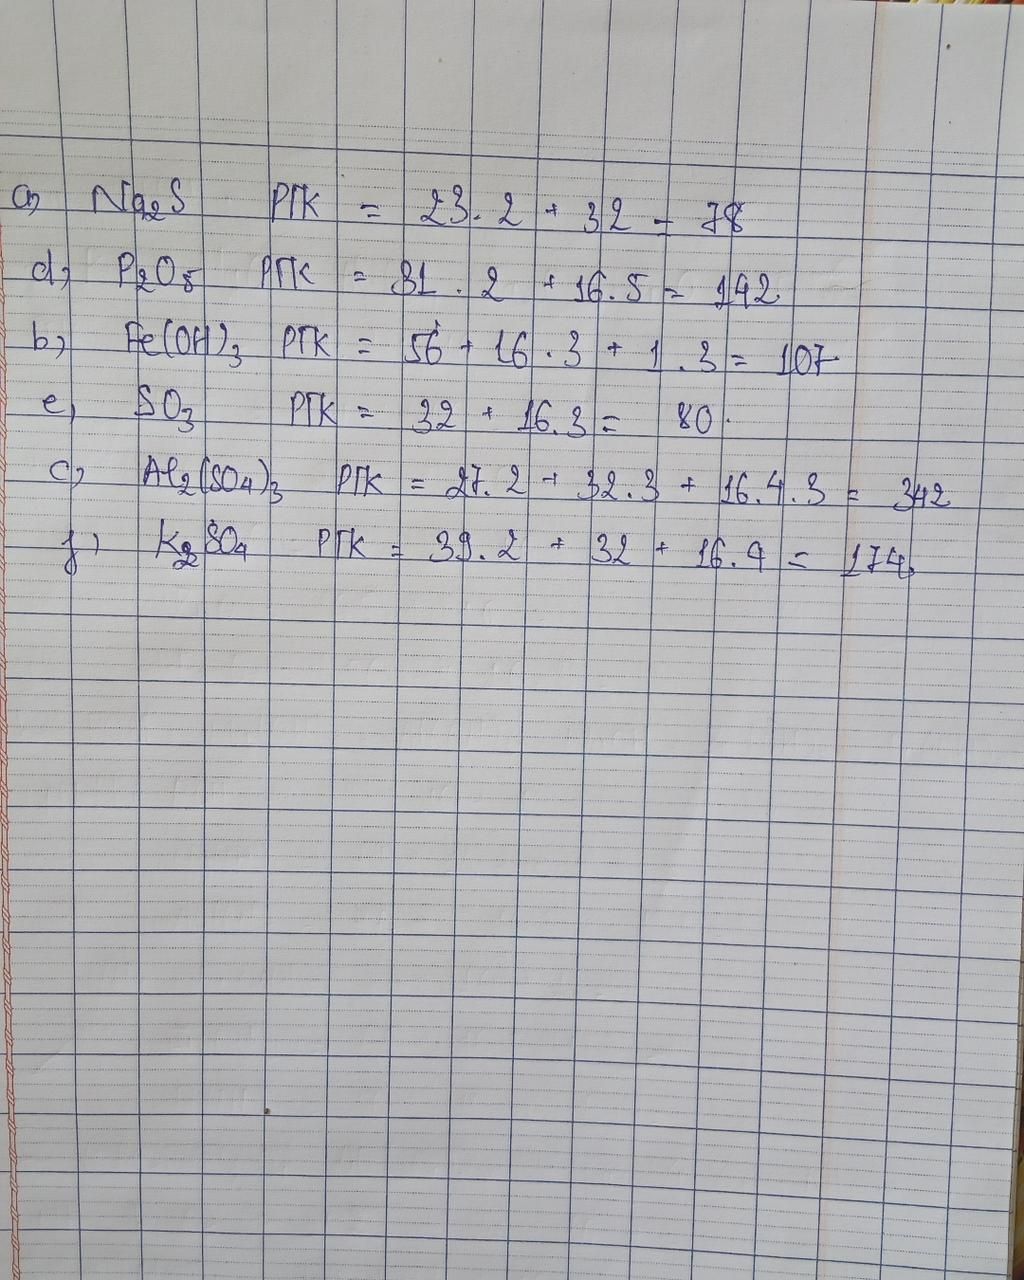 a, Na2S PTK = 23.2 + 32 = 78
d, P2O5 PTK = 31.2 + 16.5 = 142
b, Fe(OH)3 PTK = 56 + 16.3 + 1.3 = 107
e, SO3 PTK = 32 + 16.3 = 80.
c, Al2(SO4)3 PTK = 27.2 + 32.3 + 16.4.3 = 342
f, K2SO4 PTK = 39.2 + 32 + 16.4 = 174.